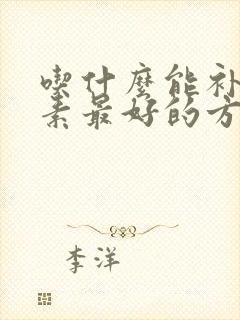 喫什麼能补
素最好的方
李洋